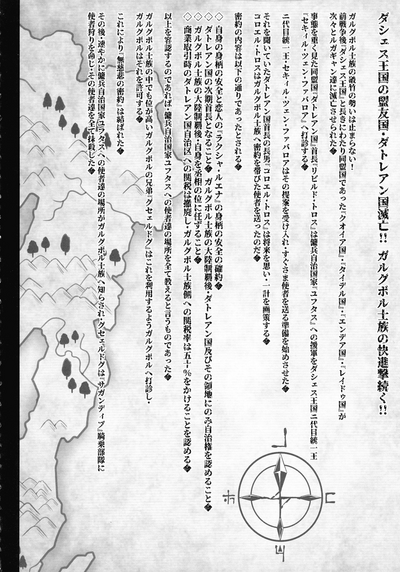 ダシェス王国の盟友国・ダトレアン国滅亡!! ガルグボル士族の快進撃続く!!
ガルグボル士族の破竹の勢いは止まらない！
前戦争後『ダシェス王国』と長きにわたり同盟国であった『クオイア国』・『タイデル国』・『モンデア国』・『レイドゥ国』が
次々とルガギャン達に滅亡させられた◆
事態を重く見た同盟国『ダトレアン国』首長『リビルド・トロス』は傭兵自治国家『ユフタス』への援軍をダシェス王国二代目統一王
『セキイル・ツェン・ファバロア』へ打診する◆
二代目統一王・セキイル・ツェン・ファバロアはその提案を受け入れ・すぐさま使者を送る準備を始めさせた◆
それを聞いていたダトレアン国首長の長男『コロエル・トロス』は将来を思い・一計を画策する◆
コロエル・トロスはガルグボル士族へ密約を帯びた使者を送ったのだ◆
密約の内容は以下の通りであったとされる◆
◇自身の身柄の安全と恋人の『ラクシャ・ルエナ』の身柄の安全の確約◆
◇ダトレアン国の次期首長となること◆ガルグボル士族の大陸制覇後・ダトレアン国及びその領地にのみ自治権を認めること◆
◇ガルグボル士族の大陸制覇後・自身を丞相の位に任ずること◆
◇商業取引時のダトレアン国自治区への関税は撤廃し・ガルグボル士族側への関税率は五十％をかけることを認める◆
以上を容認するのであれば・傭兵自治国家ユフタスへの使者達の場所を全て教えると言うものであった◆
ガルグボル士族の中でも位が高いガルグボルの兄弟『グセェルドグ』はこれを利用するようガルグボルへ打診し・
ガルグボルはそれを許可する◆
これにより『無慈悲の密約』は結ばれた◆
その後・速やかに傭兵自治国家ユフタスへの使者達の場所がガルグボル士族へ知らされ・グセェルドグは『サガンディブ』騎乗部隊に
使者狩りを命じ・その使者達を全て抹殺した◆